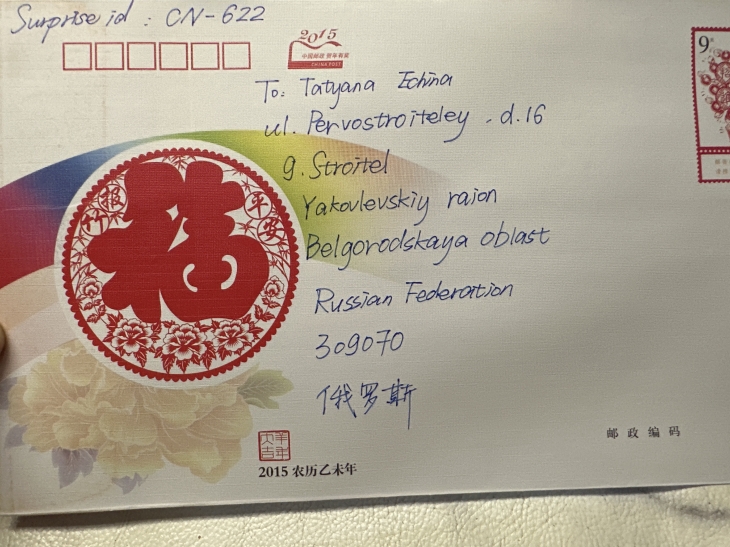 Surprise id : CN-622
2015
中国邮政 贺年有奖
CHINA POST
9
To: Tatyana Echina
ul. Pervostroiteley . d.16
g. Stroitel
Yakovlevskiy raion
Belgorodskaya oblast
Russian Federation
309070
俄罗斯
竹报平安
福
邮政编码
羊年大吉
2015 农历乙未年